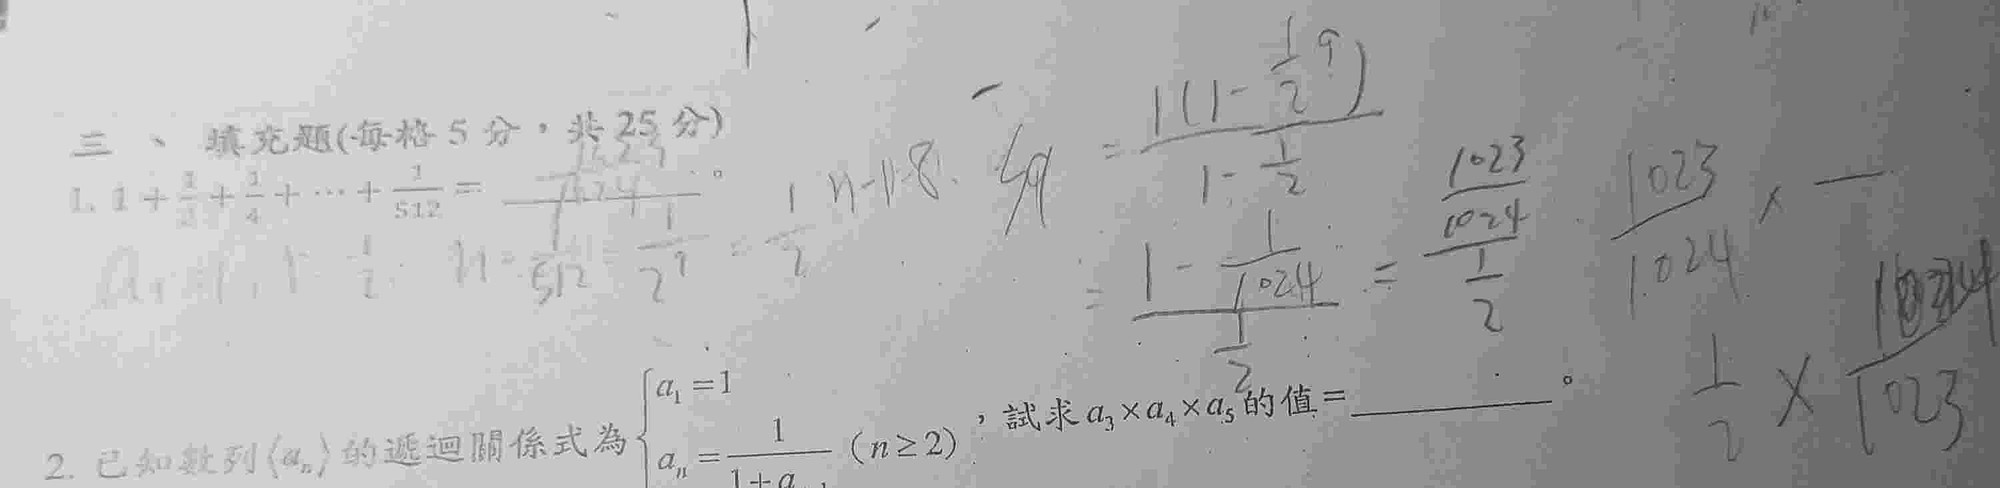 三、填充題(每格 5 分,共 25 分)
1. 1 + 1/2 + 1/4 + ⋯ + 1/512 = ______。
a₁ = 1, r = 1/2
1/512 = 1/2⁹ = 1/2
S9 = 1(1 - 1/2 9) / (1 - 1/2)
= (1 - 1/1024) / (1/2) = (1023/1024) / (1/2)
1023/1024 ×
1/2 × 1024/1023
2. 已知數列⟨aₙ⟩的遞迴關係式為 { a₁ = 1
aₙ = 1/(1 + a (n ≥ 2) ,試求 a₃ × a₄ × a₅ 的值 = ______。